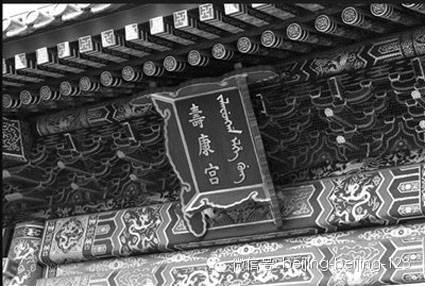 壽康宮
微信号: beijing-beijing-123